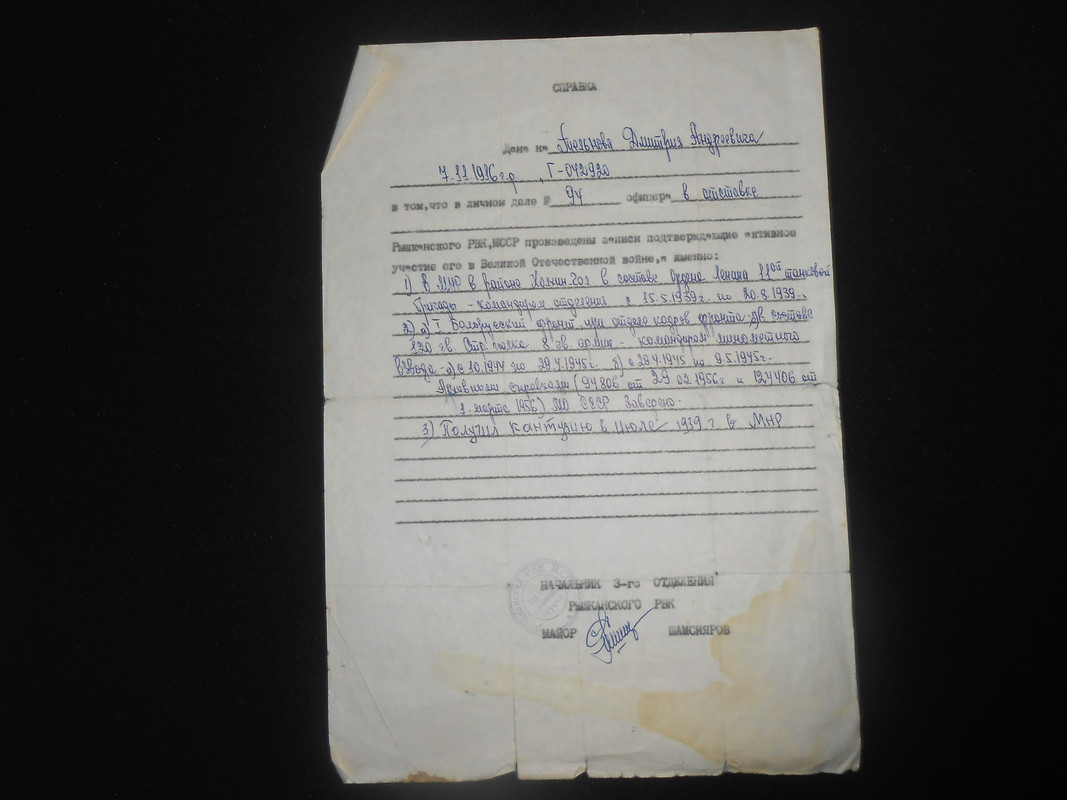 СПРАВКА
Дана на Дмитрия Андреевича
7.11.1916 г.р., Г-042920
в том,что в личном деле № 94 офицера в отставке
Рышканского РВК,МССР произведены записи подтверждающие активное
участие его в Великой Отечественной войне,а именно:
1) В МНР в районе Холхин-Гол в составе Ордена Ленина 11ой танковой
бригады - командиром отделения с 15.5.1939г. по 20.8.1939г.
2) а) I Белорусский фронт при отделе кадров фронта в составе
120 гв. Стр. полка 8 гв. армии - командиром миномётного
Взвода - а) с 10.1944 по 29.4.1945г. б) с 29.4.1945 по 9.5.1945г.
Архивными справками (94306 от 29.02.1956г и 127406 от
1. марта 1956) МО СССР Заверено.
3) Получил контузию в Июле 1939 г в МНР
НАЧАЛЬНИК 3-го ОТДЕЛЕНИЯ
РЫШКАНСКОГО РВК
МАЙОР ШАМСИЯРОВ